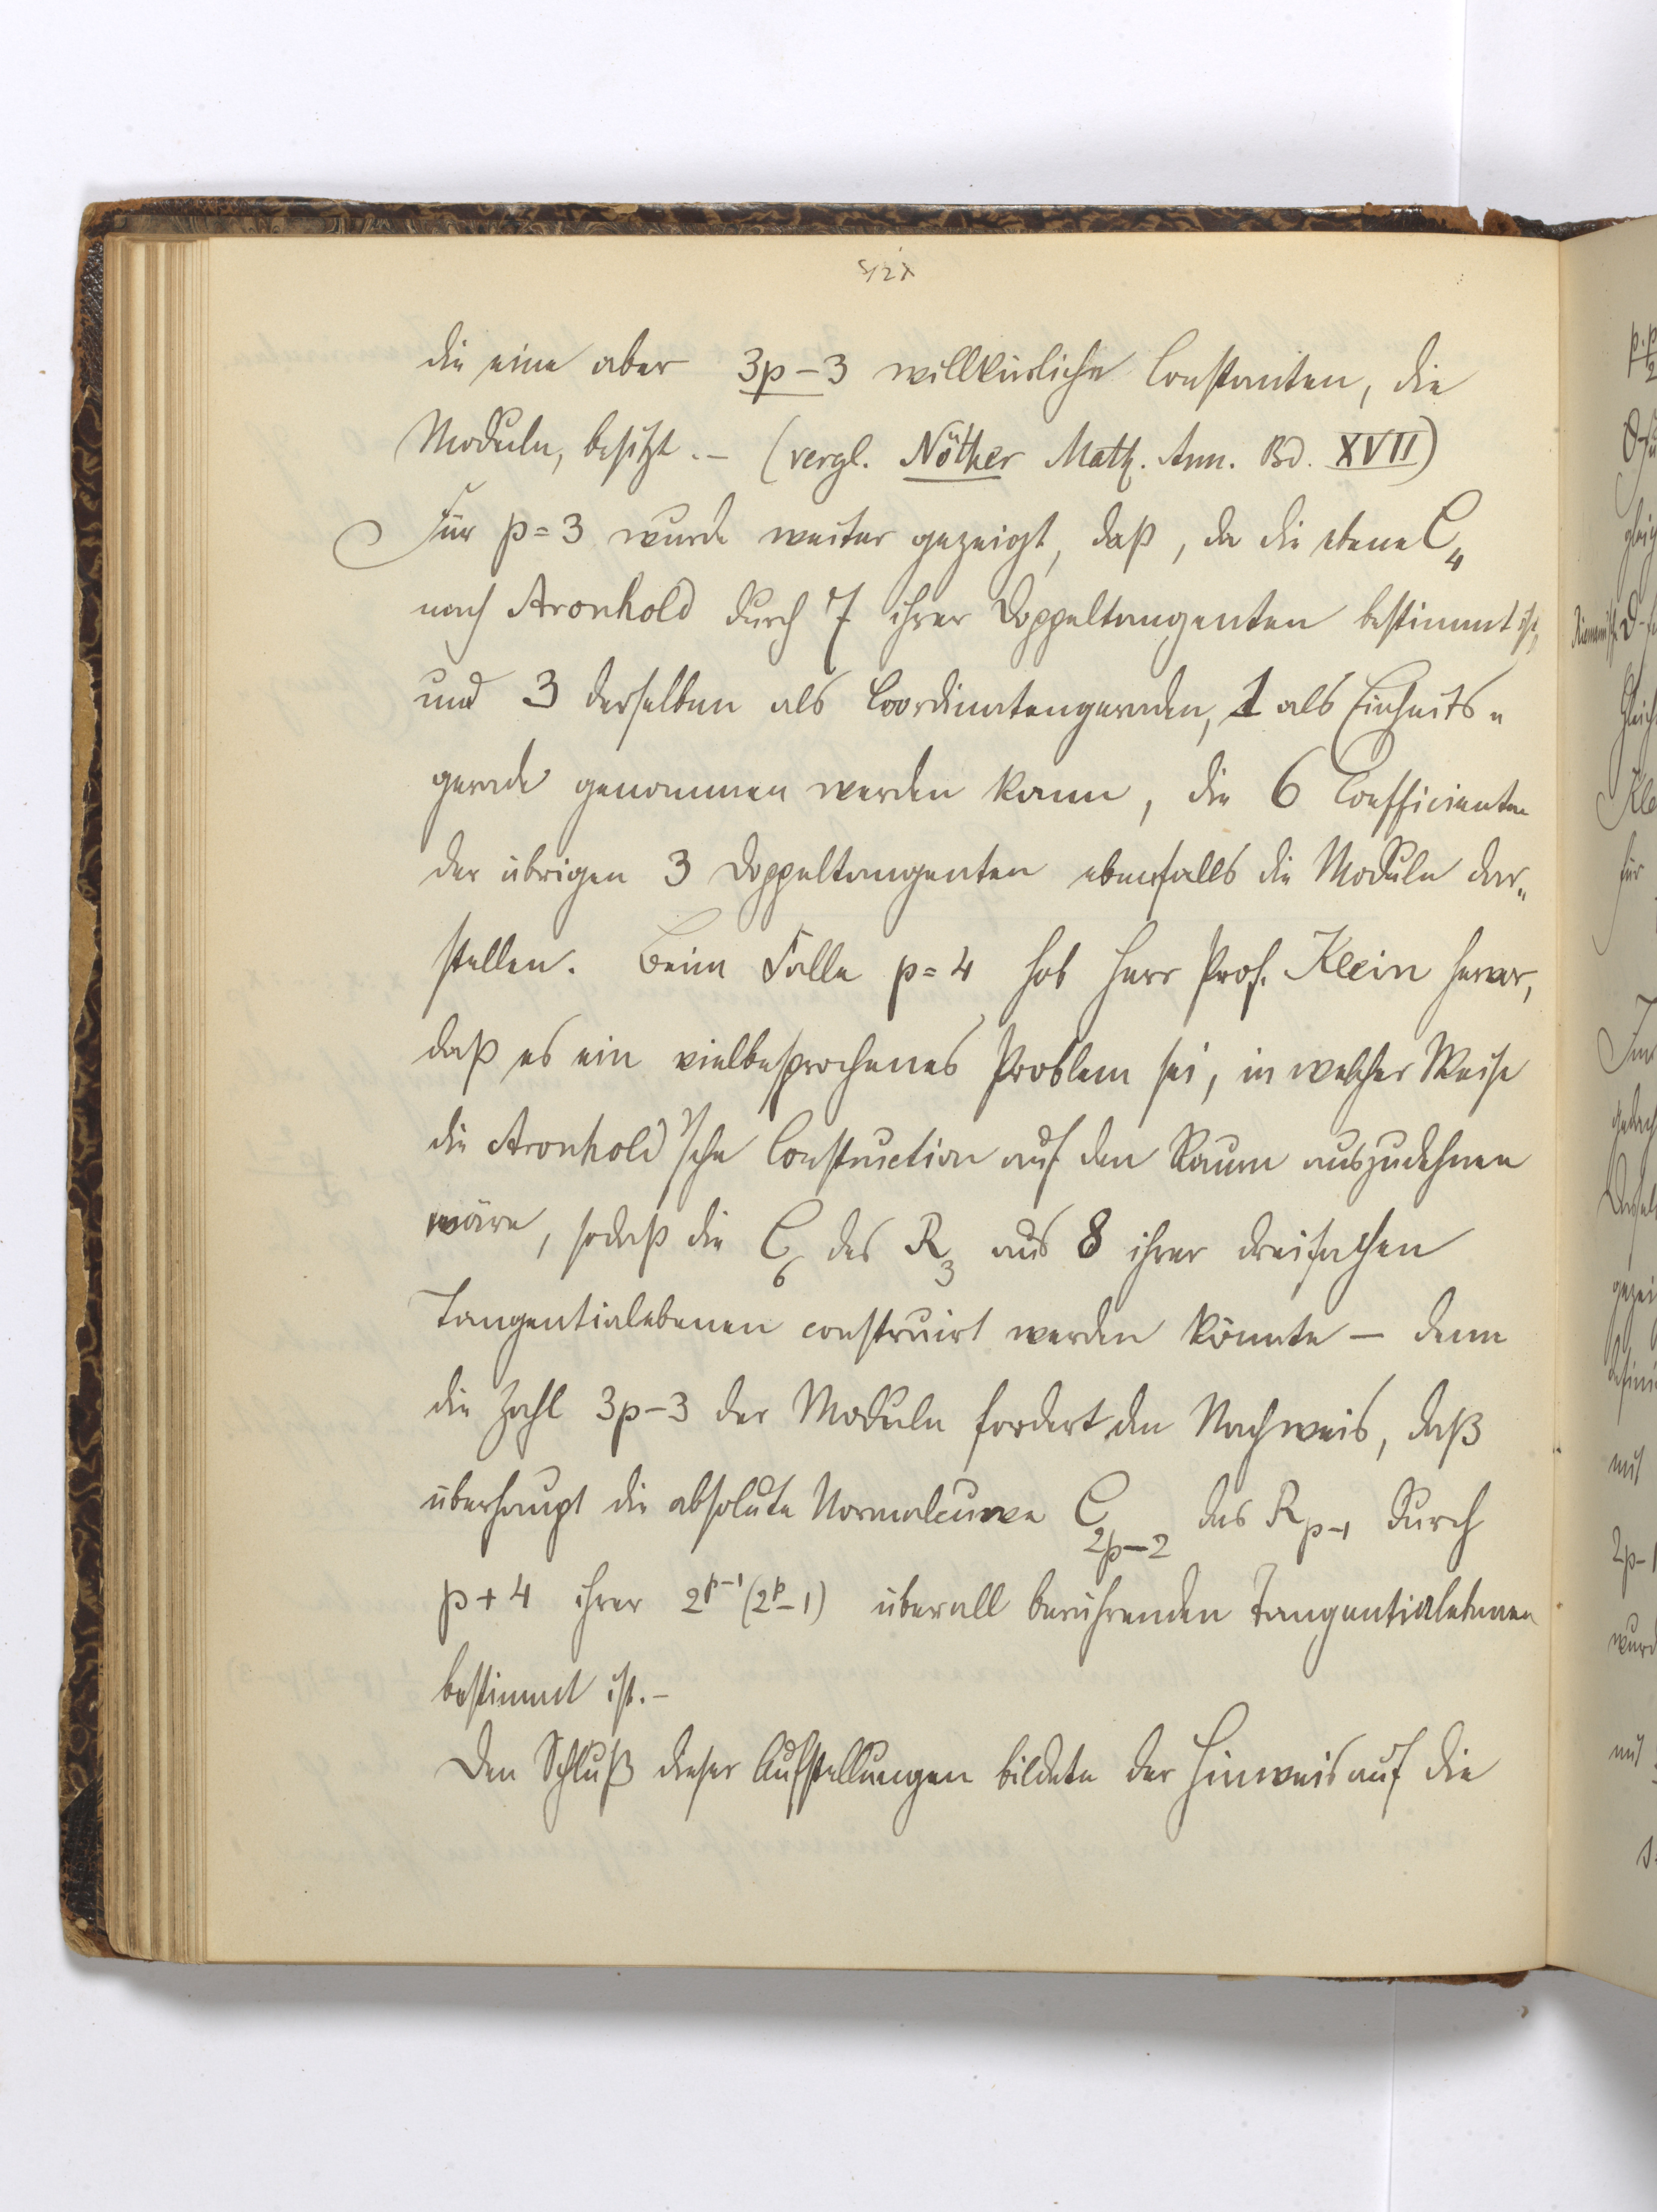 die eine aber 3p-3 willkürliche Constanten, die
Moduln, besitzt. – (vergl. Nöther Math. Ann. Bd. XVII)
Für p=3 wurde weiter gezeigt, daß, da die ebene C₄
nach Aronhold durch 7 ihrer Doppeltangenten bestimmt ist,
und 3 derselben als Coordinatengeraden, 1 als Einheits-
gerade genommen werden kann, die 6 Coefficienten
der übrigen 3 Doppeltangenten ebenfalls die Moduln dar-
stellen. Beim Falle p=4 hob Herr Prof. Klein hervor,
daß es ein vielbesprochenes Problem sei, in welcher Weise
die Aronhold'sche Construction auf den Raum auszudehnen
wäre, sodaß die C₆ des R₃ aus 8 ihrer dreifachen
Tangentialebenen construirt werden könnte – denn
die Zahl 3p-3 der Moduln fordert den Nachweis, daß
überhaupt die absolute Normalcurve C_{2p-2} des R_{p-1} durch
p+4 ihrer 2^{p-1}(2^p-1) überall berührenden Tangentialebenen
bestimmt ist. –
Den Schluß dieser Aufstellungen bildete der Hinweis auf die